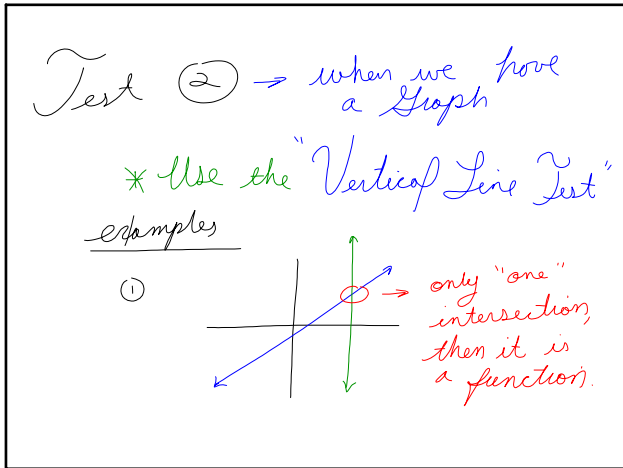 Test ② → when we have
a Graph
* Use the "Vertical Line Test"
examples
①
→ only "one"
intersection,
then it is
a function.